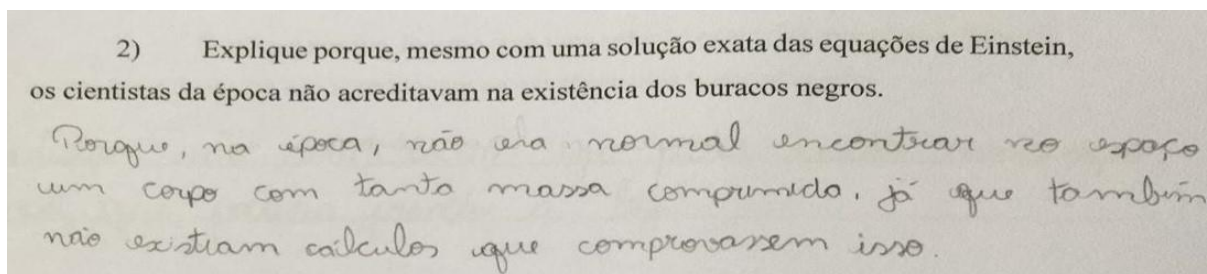 2) Explique porque, mesmo com uma solução exata das equações de Einstein,
os cientistas da época não acreditavam na existência dos buracos negros.
Porque, na época, não era normal encontrar no espaço
um corpo com tanta massa comprimida, já que também
não existiam cálculos que comprovassem isso.